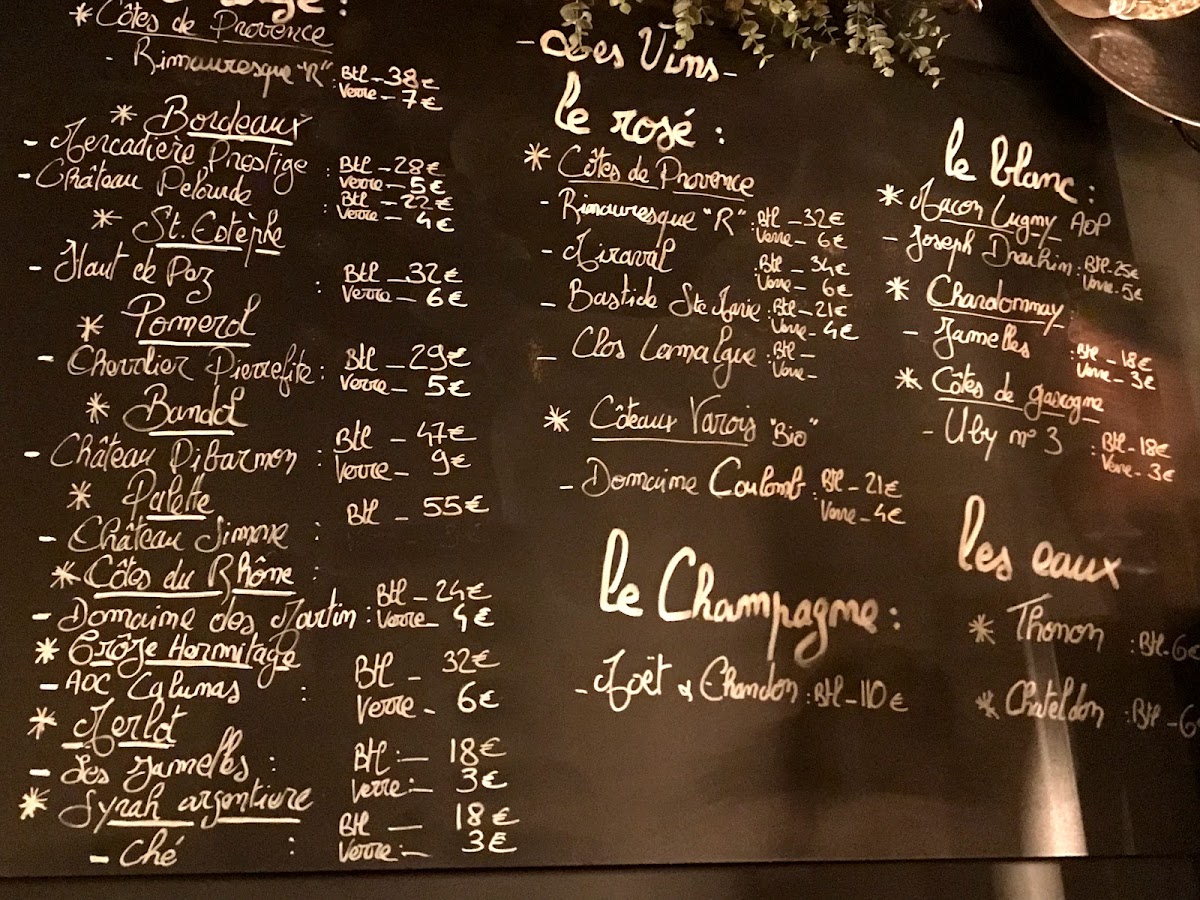 * Côtes de Provence
- Rimauresque "R" : Btl - 38€
Verre - 7€
* Bordeaux
- Mercadière Prestige : Btl - 28€
Verre - 5€
- Château Pelourde : Btl - 22€
Verre - 4€
* St. Estèphe
- Haut de Poz : Btl - 32€
Verre - 6€
* Pomerol
- Chevalier Pierrefite : Btl - 29€
Verre - 5€
* Bandol
- Château Pibarnon : Btl - 47€
Verre - 9€
* Palette
- Château Simone : Btl - 55€
* Côtes du Rhône :
- Domaine des Martin : Btl - 24€
Verre - 4€
* Crôze Hermitage
- AOC Calunas : Btl - 32€
Verre - 6€
* Merlot
- Les Jamelles : Btl - 18€
Verre - 3€
* Syrah argentiere
- Ché : Btl - 18€
Verre - 3€
- Les Vins -
le rosé :
* Côtes de Provence
- Rimauresque "R" : Btl - 32€
Verre - 6€
- Miraval : Btl - 34€
Verre - 6€
- Bastide Ste Marie : Btl - 21€
Verre - 4€
- Clos Lamalgue : Btl -
Verre -
* Côteaux Varois "Bio"
- Domaine Coulomb : Btl - 21€
Verre - 4€
le Champagne :
- Moët & Chandon : Btl - 110€
le blanc :
* Macon Lugny AOP
- Joseph Drouhin : Btl - 25€
Verre - 5€
* Chardonnay :
- Jamelles : Btl - 18€
Verre - 3€
* Côtes de gascogne
- Uby n° 3 : Btl - 18€
Verre - 3€
les eaux
* Thonon : Btl - 6€
* Chateldon : Btl - 6